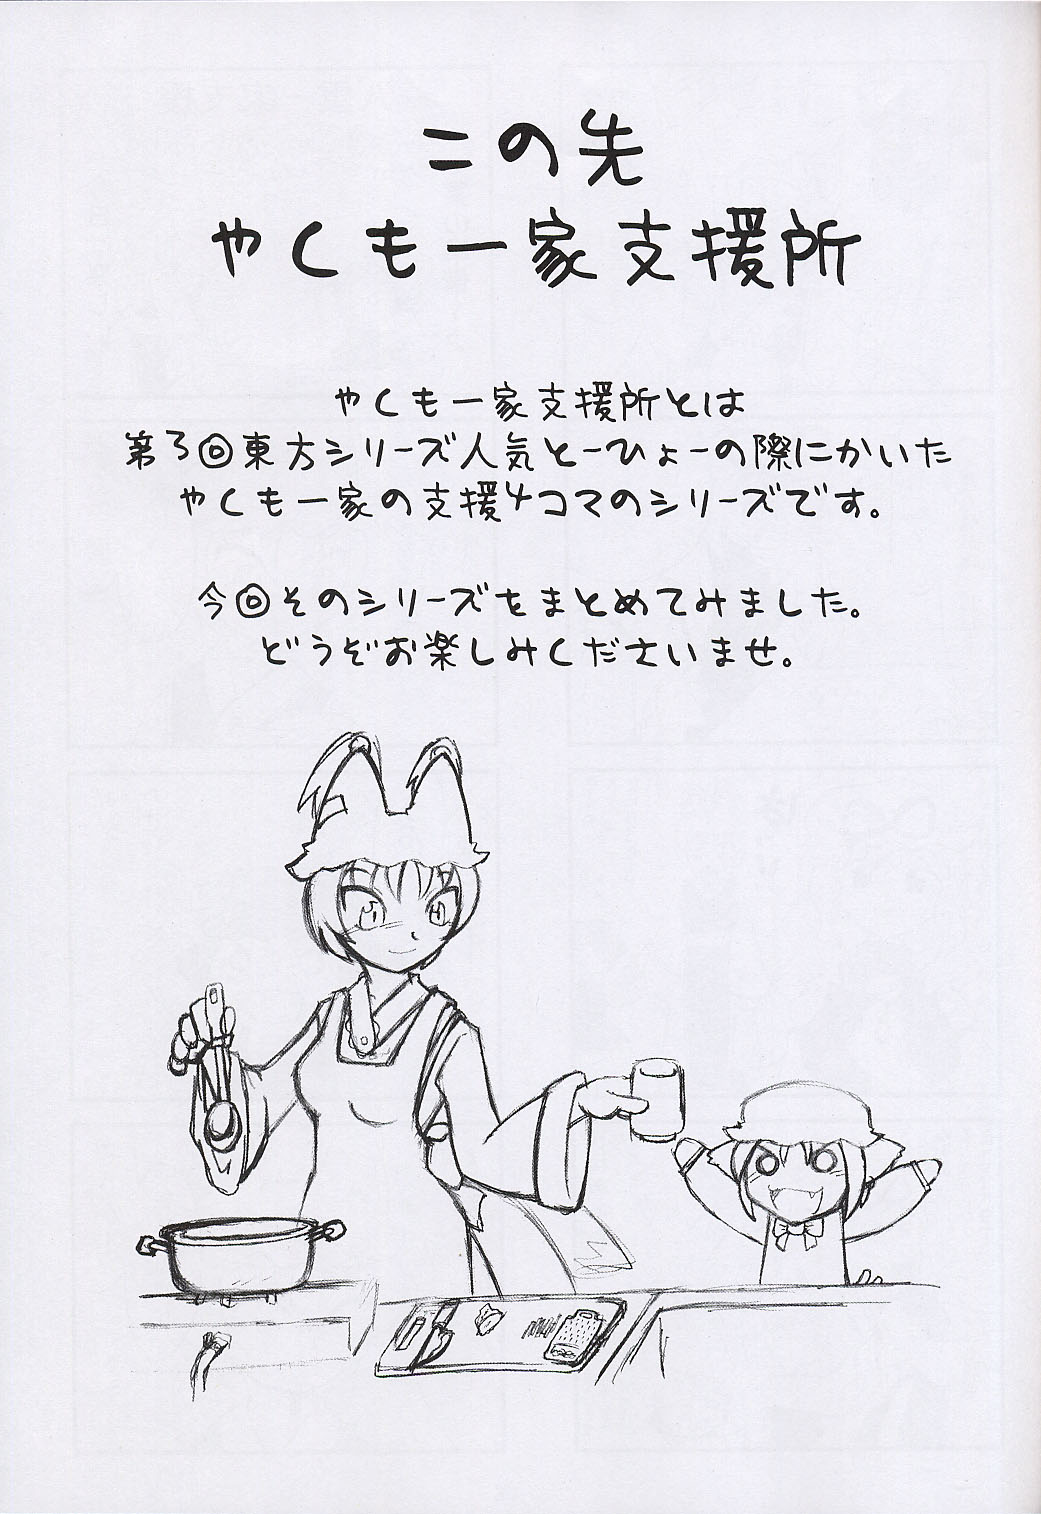 この先
やくも一家支援所
やくも一家支援所とは
第3回東方シリーズ人気とーひょーの際にかいた
やくも一家の支援4コマのシリーズです。
今回そのシリーズをまとめてみました。
どうぞお楽しみくださいませ。